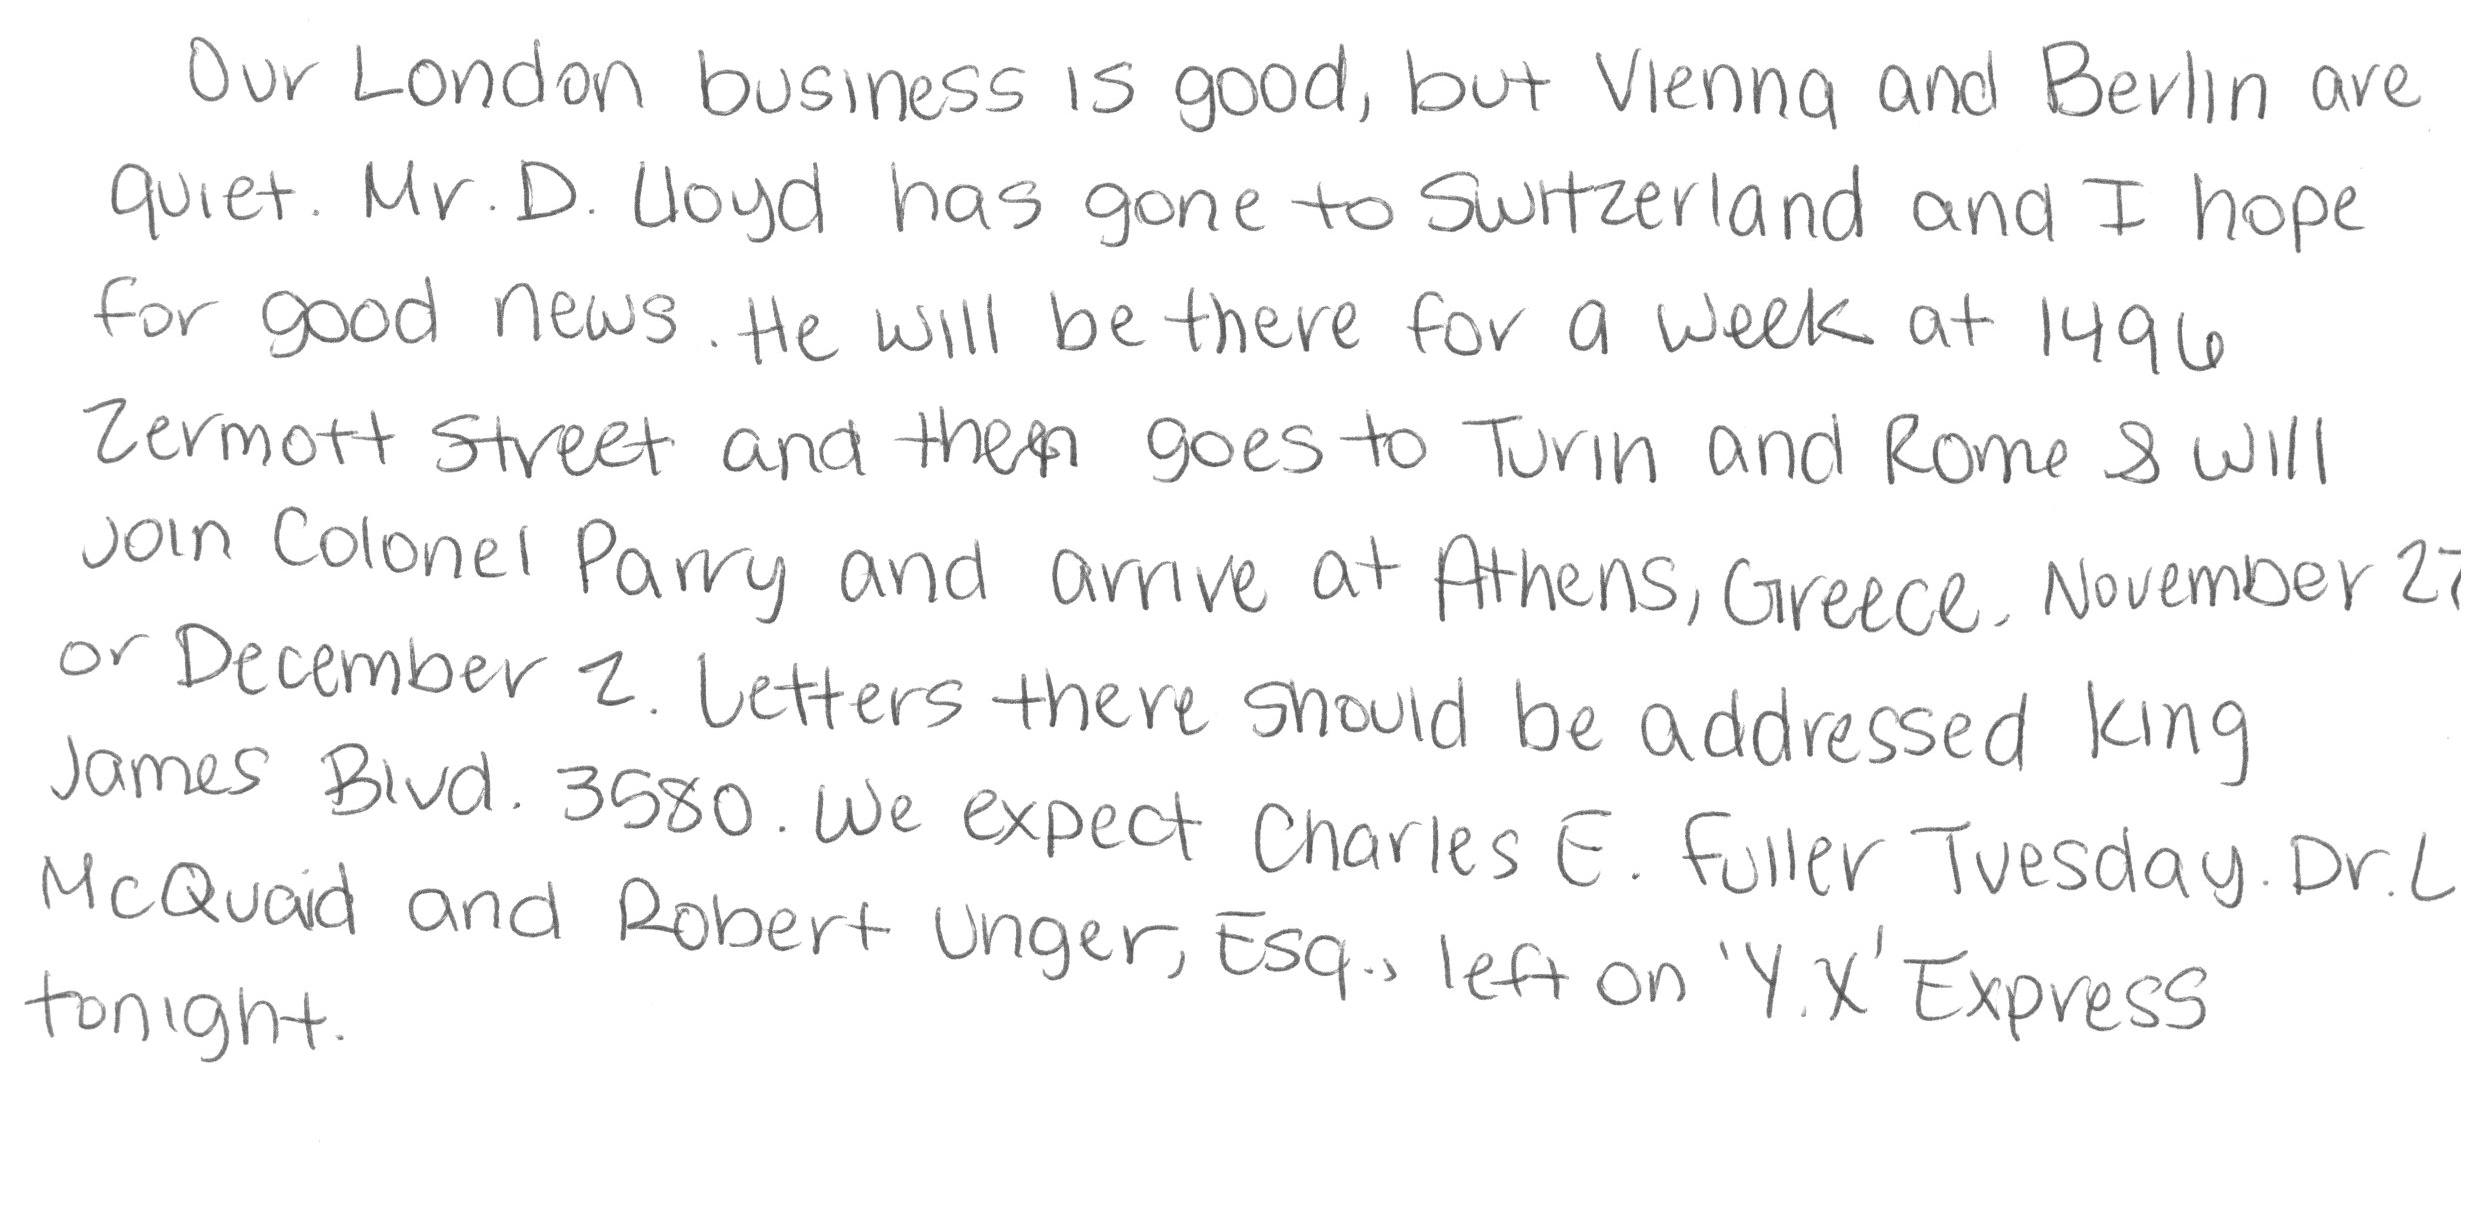 Our London business is good, but Vienna and Berlin are
quiet. Mr. D. Lloyd has gone to Switzerland and I hope
for good news. He will be there for a week at 1496
Zermott Street and then goes to Turin and Rome & will
join Colonel Parry and arrive at Athens, Greece, November 27
or December 2. Letters there should be addressed King
James Blvd. 3580. We expect Charles E. Fuller Tuesday. Dr. L
McQuaid and Robert Unger, Esq., left on 'Y.X' Express
tonight.